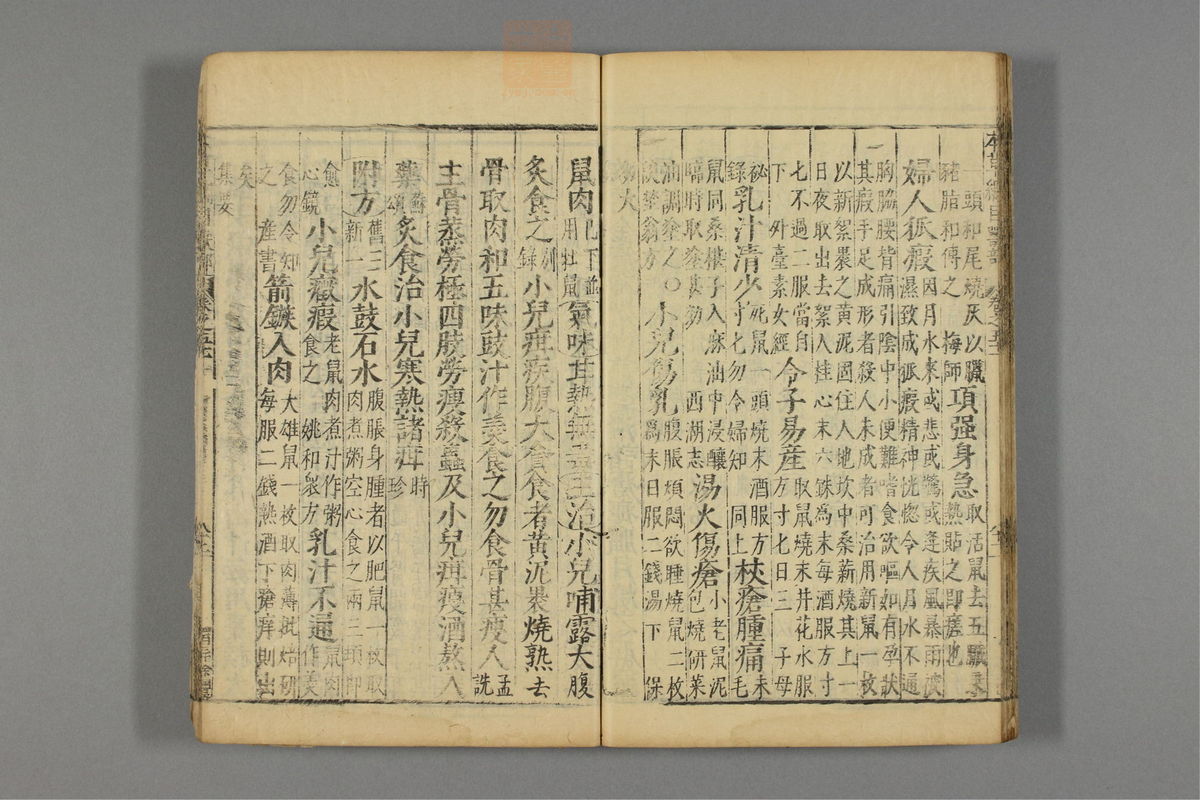 一頭和尾燒灰以臘
豬脂和傅之 梅師
項强身急
取活鼠去五臟
熱貼之即瘥也
婦人狐瘕
因月水來或悲或驚或逢疾風暴雨
濕致成狐瘕精神恍惚令人月水不通
胸脇腰背痛引陰中小便難嗜食欲嘔如有孕狀
其瘕手足成形者殺人未成者可治用新鼠一枚
以新絮裹之黃泥固住入地坎中桑薪燒其上一
日夜取出去絮入桂心末六銖爲末每酒服方寸
七不過二服當自
下 外臺素女經
令子易產
取鼠燒末井花水服
方寸七日三 子母
祕
錄
乳汁清少
死鼠一頭燒末酒服方
寸七勿令婦知 同上
杖瘡腫痛
未
毛
鼠同桑椹子入麻油中浸釀
臨時取塗甚効 西湖志
湯火傷瘡
小老鼠泥
包燒研菜
油調塗之
〇小兒傷乳
腹脹煩悶欲睡燒鼠二枚
爲末日服二錢湯下 保
鼠肉
已下並
用牡鼠
氣味甘熱無毒主治小兒哺露大腹
炙食之
別
錄
小兒疳疾腹大貪食者黃泥裹燒熟去
骨取肉和五味豉汁作羹食之勿食骨甚瘦人
孟
詵
主骨蒸勞極四肢勞瘦殺蟲及小兒疳瘦酒熬入
藥
蘇
頌
炙食治小兒寒熱諸疳
時
珍
附方
舊三
新一
水鼓石水
腹脹身腫者以肥鼠一枚取
肉煮粥空心食之兩三頓即
愈
心鏡
小兒癥瘕
老鼠肉煮汁作粥
食之 姚和衆方
乳汁不通
鼠肉
作羹
食勿令知
之 產書
箭鏃入肉
大雄鼠一枚取肉薄批焙研
每服二錢熱酒下瘡痒則出
矣
集要